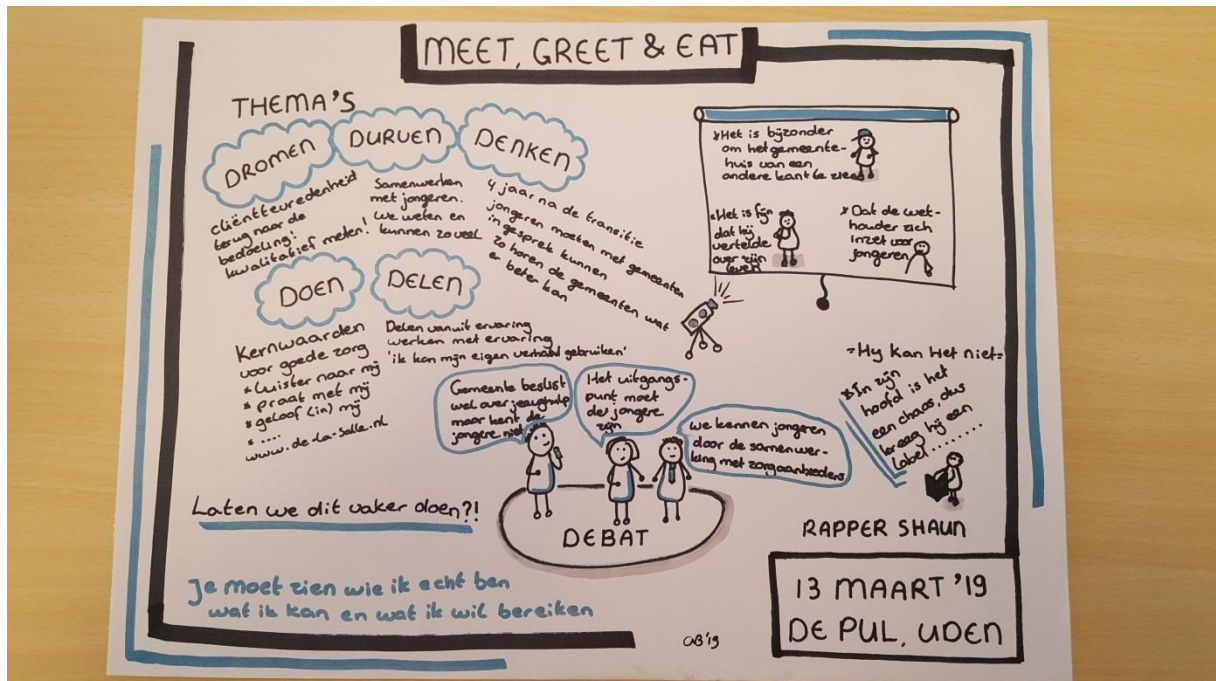 MEET, GREET & EAT
THEMA'S
DROMEN
cliënttevredenheid
terug naar de
bedoeling!
kwalitatief meten!
DURVEN
Samenwerken
met jongeren.
We weten en
kunnen zoveel
DENKEN
4 jaar na de transitie
jongeren moeten met gemeenten
in gesprek kunnen
zo horen de gemeenten wat
er beter kan
DOEN
Kernwaarden
voor goede zorg
* Luister naar mij
* praat met mij
* geloof (in) mij
* ....
www.de-la-salle.nl
DELEN
Delen vanuit ervaring
werken met ervaring
'ik kan mijn eigen verhaal gebruiken'
* Het is bijzonder
om het gemeente-
huis van een
andere kant te zien
* Het is fijn
dat hij
vertelde
over zijn
leven
* Dat de wet-
houder zich
inzet voor
jongeren
Gemeente beslist
wel over jeugdhulp
maar kent de
jongere niet
Het uitgangs-
punt moet
de jongere
zijn
we kennen jongeren
door de samenwer-
king met zorgaanbieders
DEBAT
= Hy kan Het niet =
* In zijn
hoofd is het
een chaos, dus
kreeg hij een
label........
RAPPER SHAUN
Laten we dit vaker doen?!
Je moet zien wie ik echt ben
wat ik kan en wat ik wil bereiken
13 MAART '19
DE PUL, UDEN